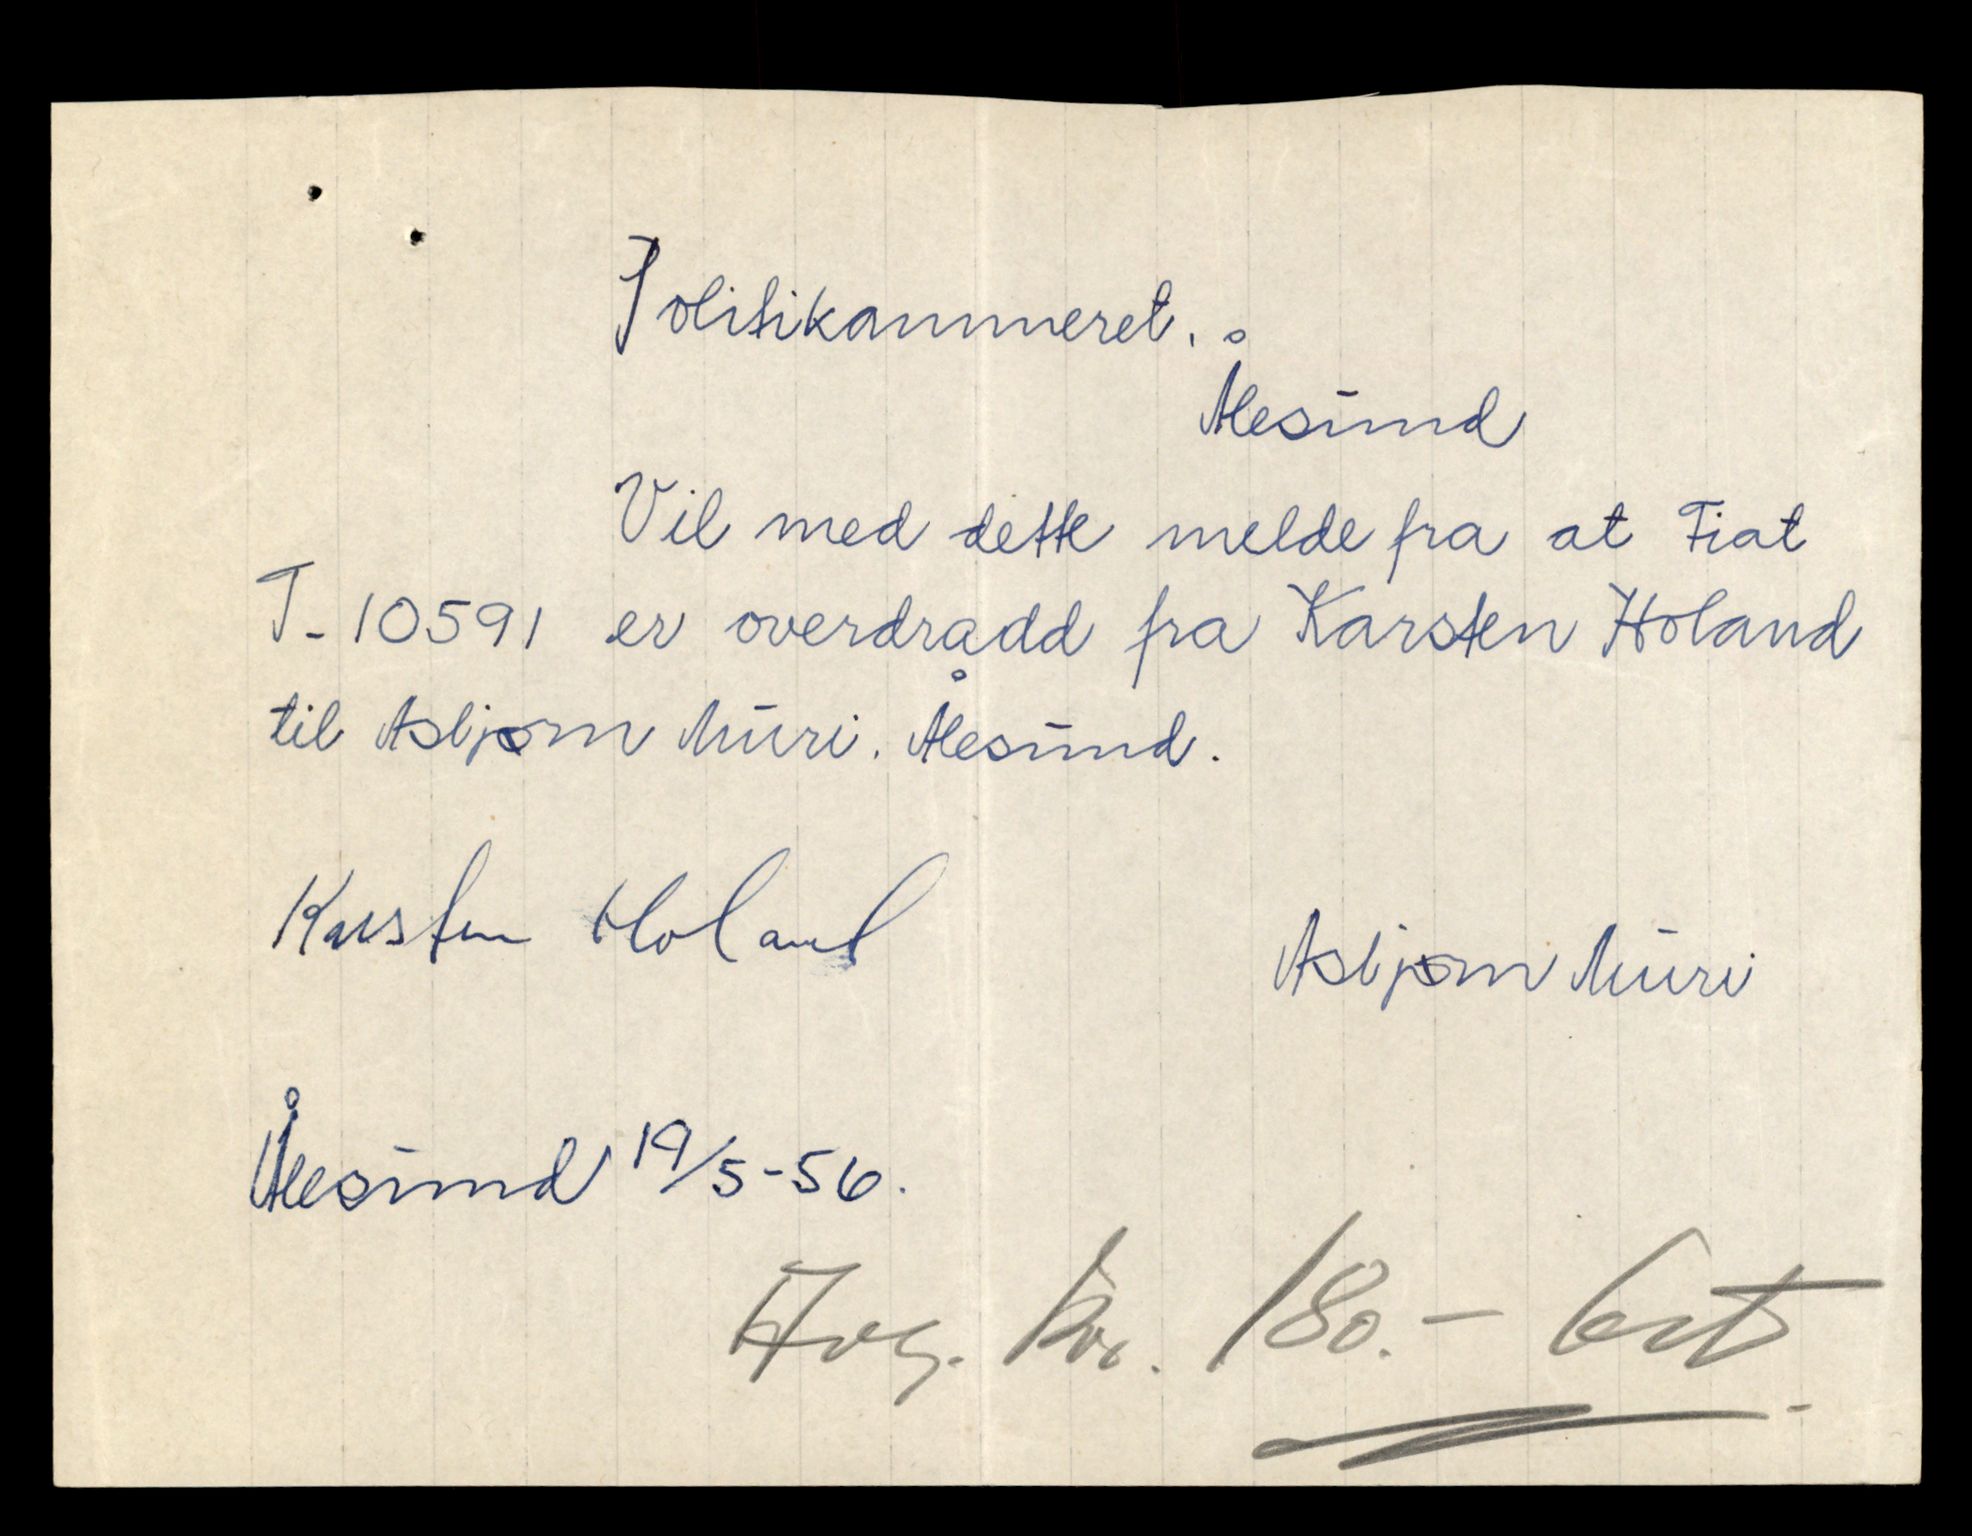 Politikammeret.
Ålesund
Vil med dette melde fra at Fiat
T-10591 er overdradd fra Karsten Holand
til Asbjørn Muri. Ålesund.
Karsten Holand
Asbjørn Muri
Ålesund 19/5-56.
Avg. kr. 180.-